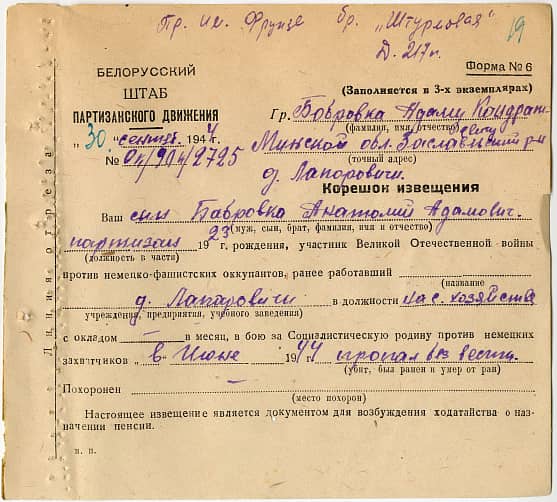 Пр. им. Фрунзе бр. "Штурмовая" 19
Д. 217 п.
Форма № 6
БЕЛОРУССКИЙ
ШТАБ
ПАРТИЗАНСКОГО ДВИЖЕНИЯ
"30" сентяб. 1944 г.
№ 04/904/2725
(Заполняется в 3-х экземплярах)
Гр. Бобровка Адаму Кондрать
евичу
(фамилия, имя, отчество)
Минской обл. Заславский р-н
(точный адрес)
д. Лапоровичи.
Корешок извещения
Ваш сын Бабровко Анатолий Адамович.
(муж, сын, брат, фамилия, имя и отчество)
партизан 1923 г. рождения, участник Великой Отечественной войны
(должность в части)
против немецко-фашистских оккупантов, ранее работавший
(название
д. Лапоровичи в должности на с. хозяйстве
учреждения, предприятия, учебного заведения)
с окладом — в месяц, в бою за Социалистическую родину против немецких
захватчиков "в Июне 1944 пропал без вести.
(убит, был ранен и умер от ран)
Похоронен —
(место похорон)
Настоящее извещение является документом для возбуждения ходатайства о наз-
начении пенсии.
н. п.
Линия отреза